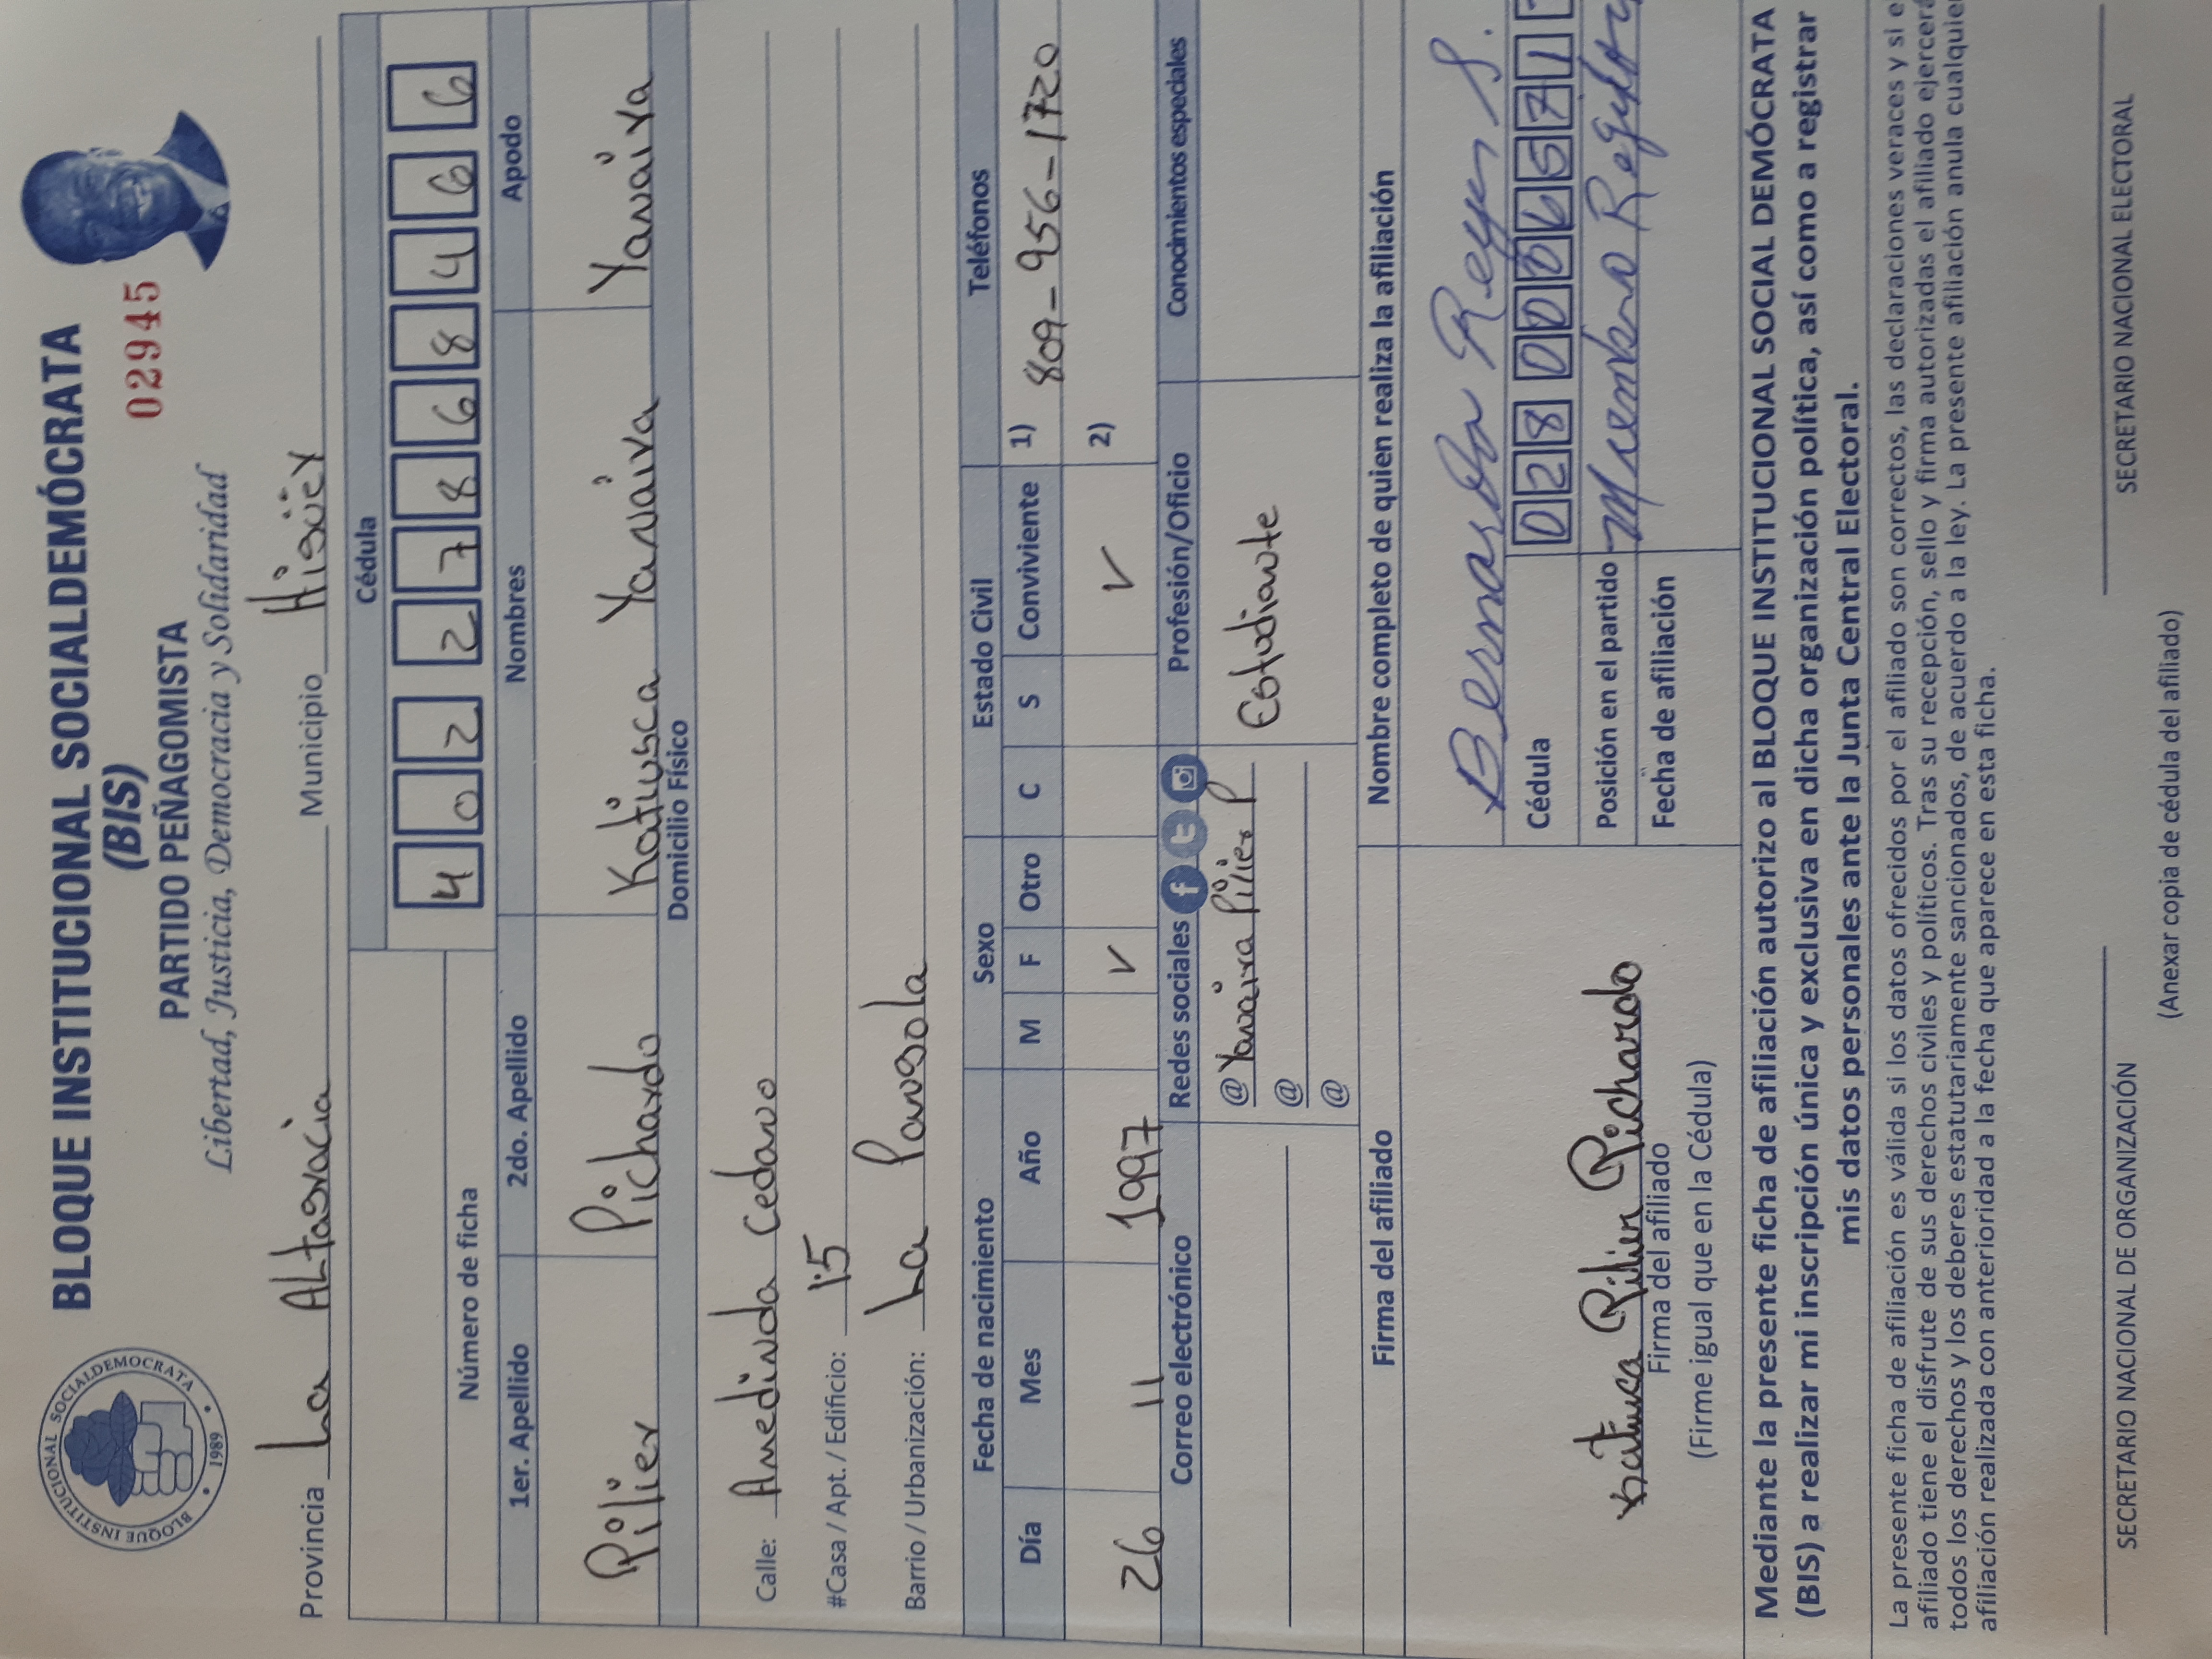 BLOQUE INSTITUCIONAL SOCIALDEMOCRATA
• 1989 •
BLOQUE INSTITUCIONAL SOCIALDEMÓCRATA
(BIS)
PARTIDO PEÑAGOMISTA
02945
Libertad, Justicia, Democracia y Solidaridad
Provincia La Altagracia Municipio Higüey
Cédula
4 0 2 2 7 8 6 8 4 6 6
Número de ficha
1er. Apellido 2do. Apellido Nombres Apodo
Pilier Pichardo Katiusca Yanaira Yanaira
Domicilio Físico
Calle: Amedinda Cedano
#Casa / Apt. / Edificio: 15
Barrio / Urbanización: La Pangola
Fecha de nacimiento Sexo Estado Civil Teléfonos
Día Mes Año M F Otro C S Conviviente 1) 809-956-1720
26 11 1997 ✓ ✓ 2)
Correo electrónico Redes sociales Profesión/Oficio Conocimientos espedales
@ Yanaira Pilier P Estudiante
@
@
Firma del afiliado Nombre completo de quien realiza la afiliación
Bernardo Reyes S.
Katiusca Pilier Pichardo Cédula 0 2 8 0 0 0 6 5 7 1
Firma del afiliado Posición en el partido Miembro
(Firme igual que en la Cédula) Fecha de afiliación
Mediante la presente ficha de afiliación autorizo al BLOQUE INSTITUCIONAL SOCIAL DEMÓCRATA
(BIS) a realizar mi inscripción única y exclusiva en dicha organización política, así como a registrar
mis datos personales ante la Junta Central Electoral.
La presente ficha de afiliación es válida si los datos ofrecidos por el afiliado son correctos, las declaraciones veraces y si e
afiliado tiene el disfrute de sus derechos civiles y políticos. Tras su recepción, sello y firma autorizadas el afiliado ejercerá
todos los derechos y los deberes estatutariamente sancionados, de acuerdo a la ley. La presente afiliación anula cualquier
afiliación realizada con anterioridad a la fecha que aparece en esta ficha.
SECRETARIO NACIONAL DE ORGANIZACIÓN SECRETARIO NACIONAL ELECTORAL
(Anexar copia de cédula del afiliado)